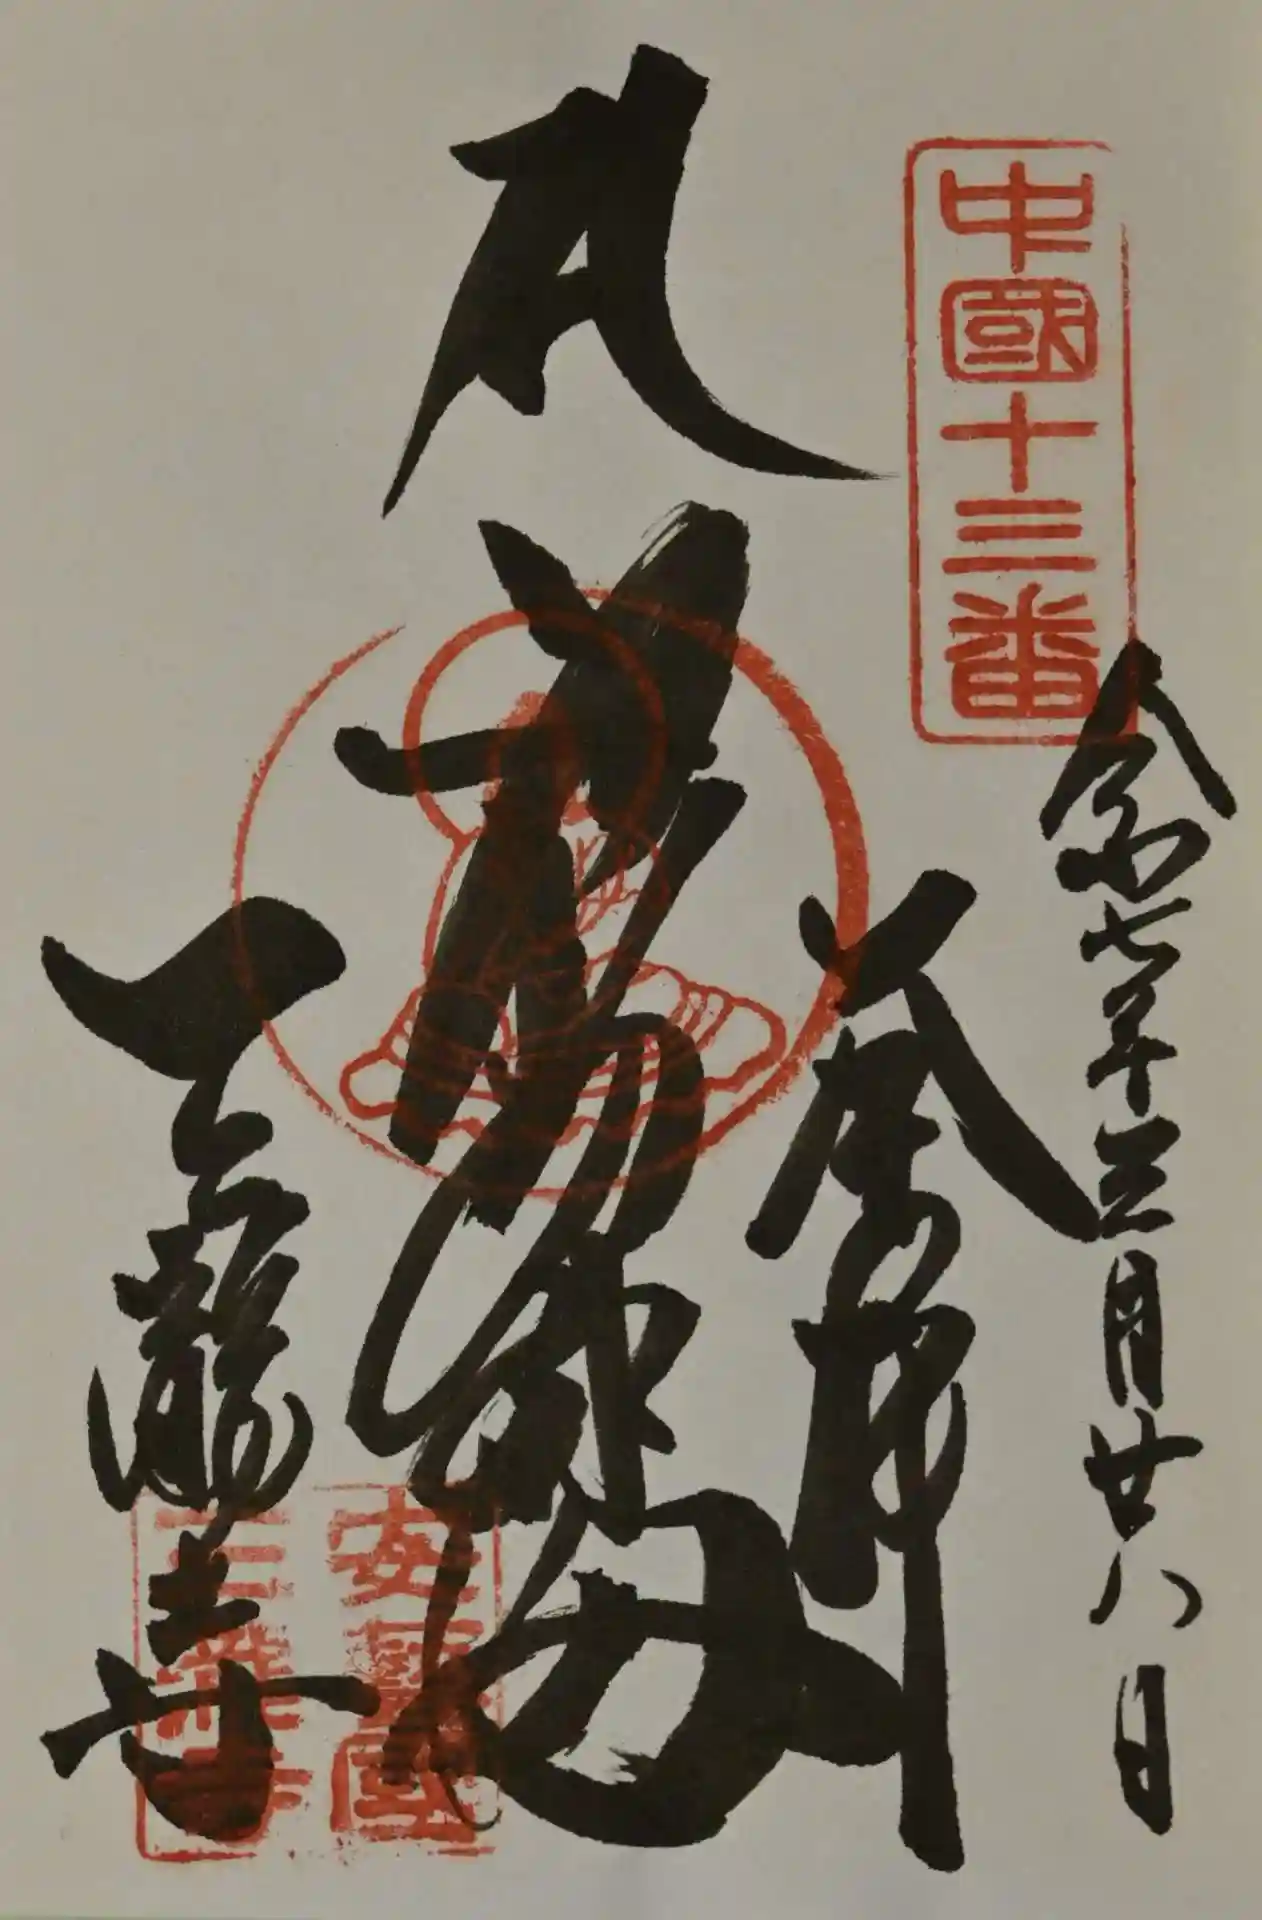 中國十三番
令和七年三月廿八日
奉拝
三瀧寺
安藝國
三瀧寺